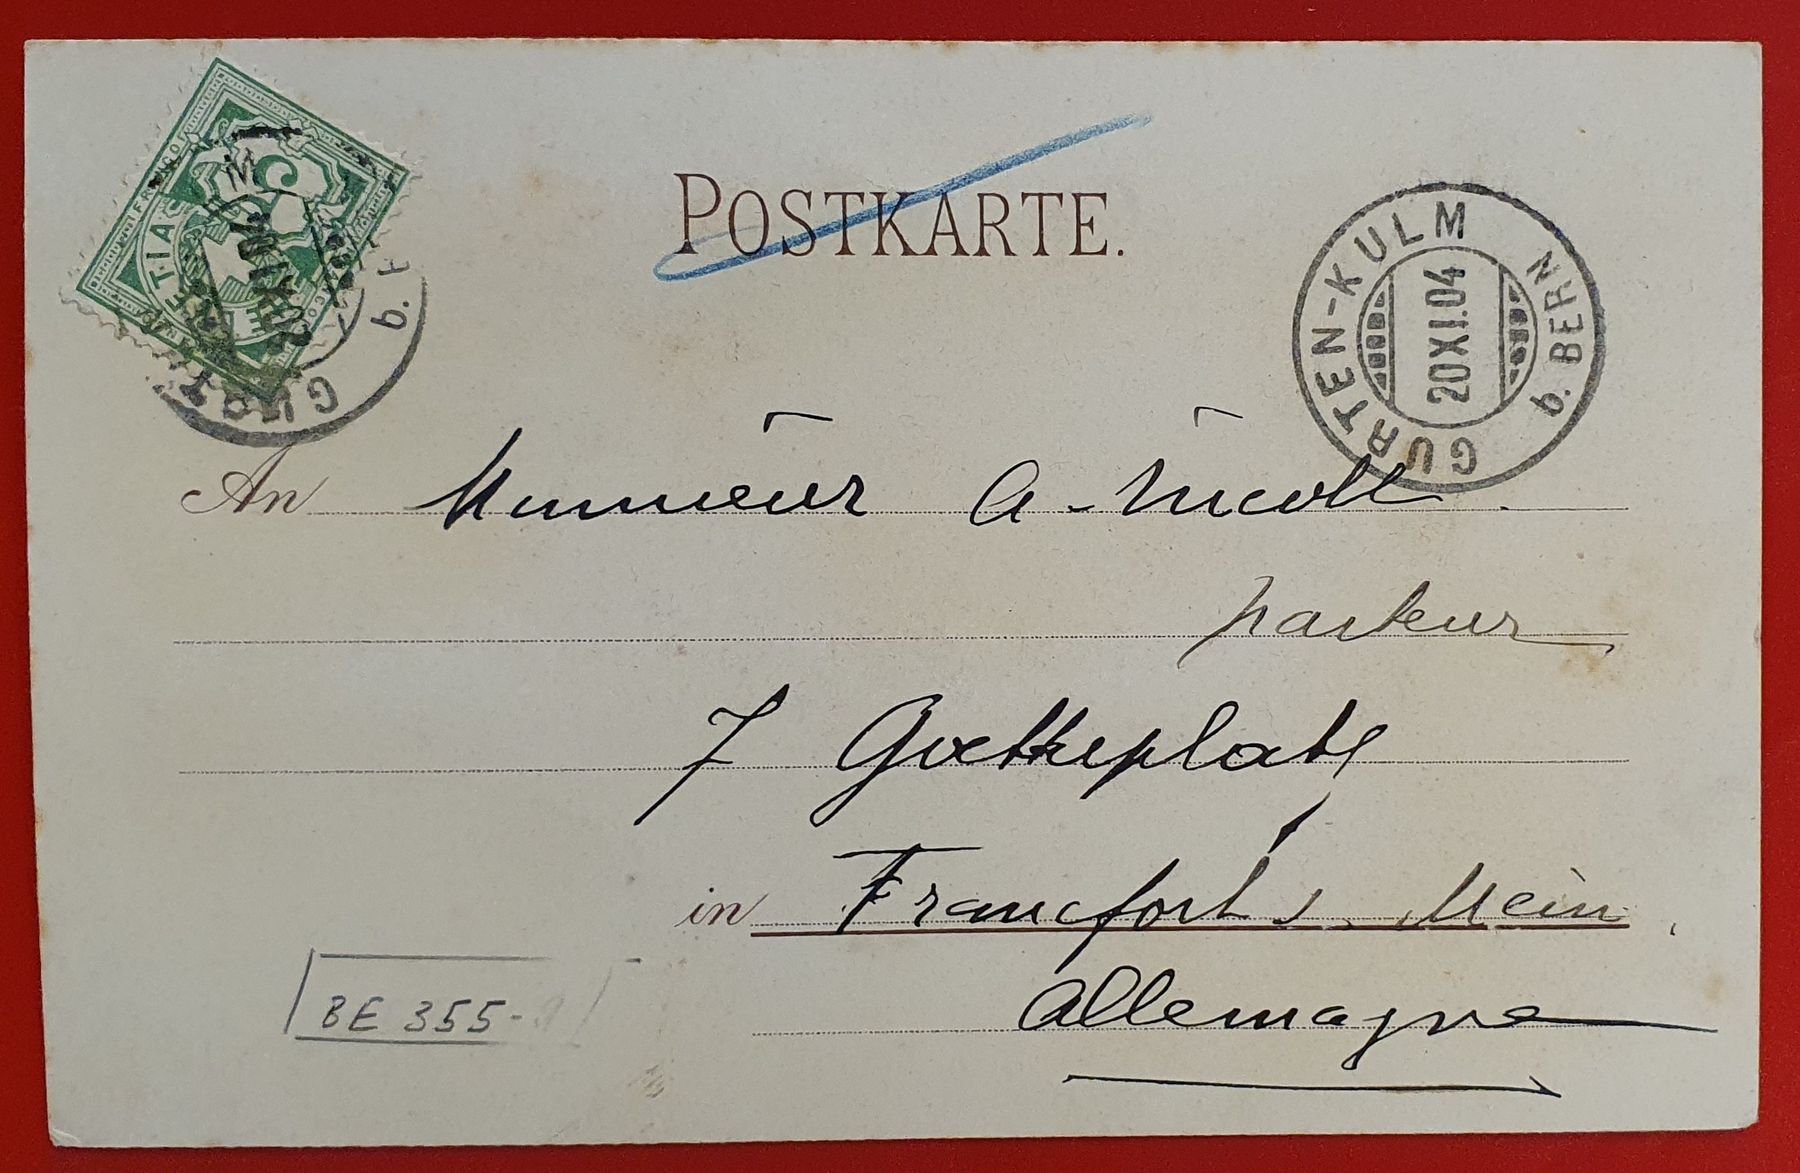 FRANCO
HELVETIA
5
20 XI 04
GURTEN
b.
POSTKARTE.
GURTEN-KULM
20 XI. 04
b. BERN
An Monsieur A. Nicoll
pasteur
7 Goetheplatz
in Francfort s. Mein
Allemagne
BE 355-